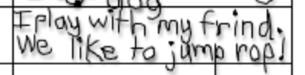 I play with my frind.
We like to jump rop!